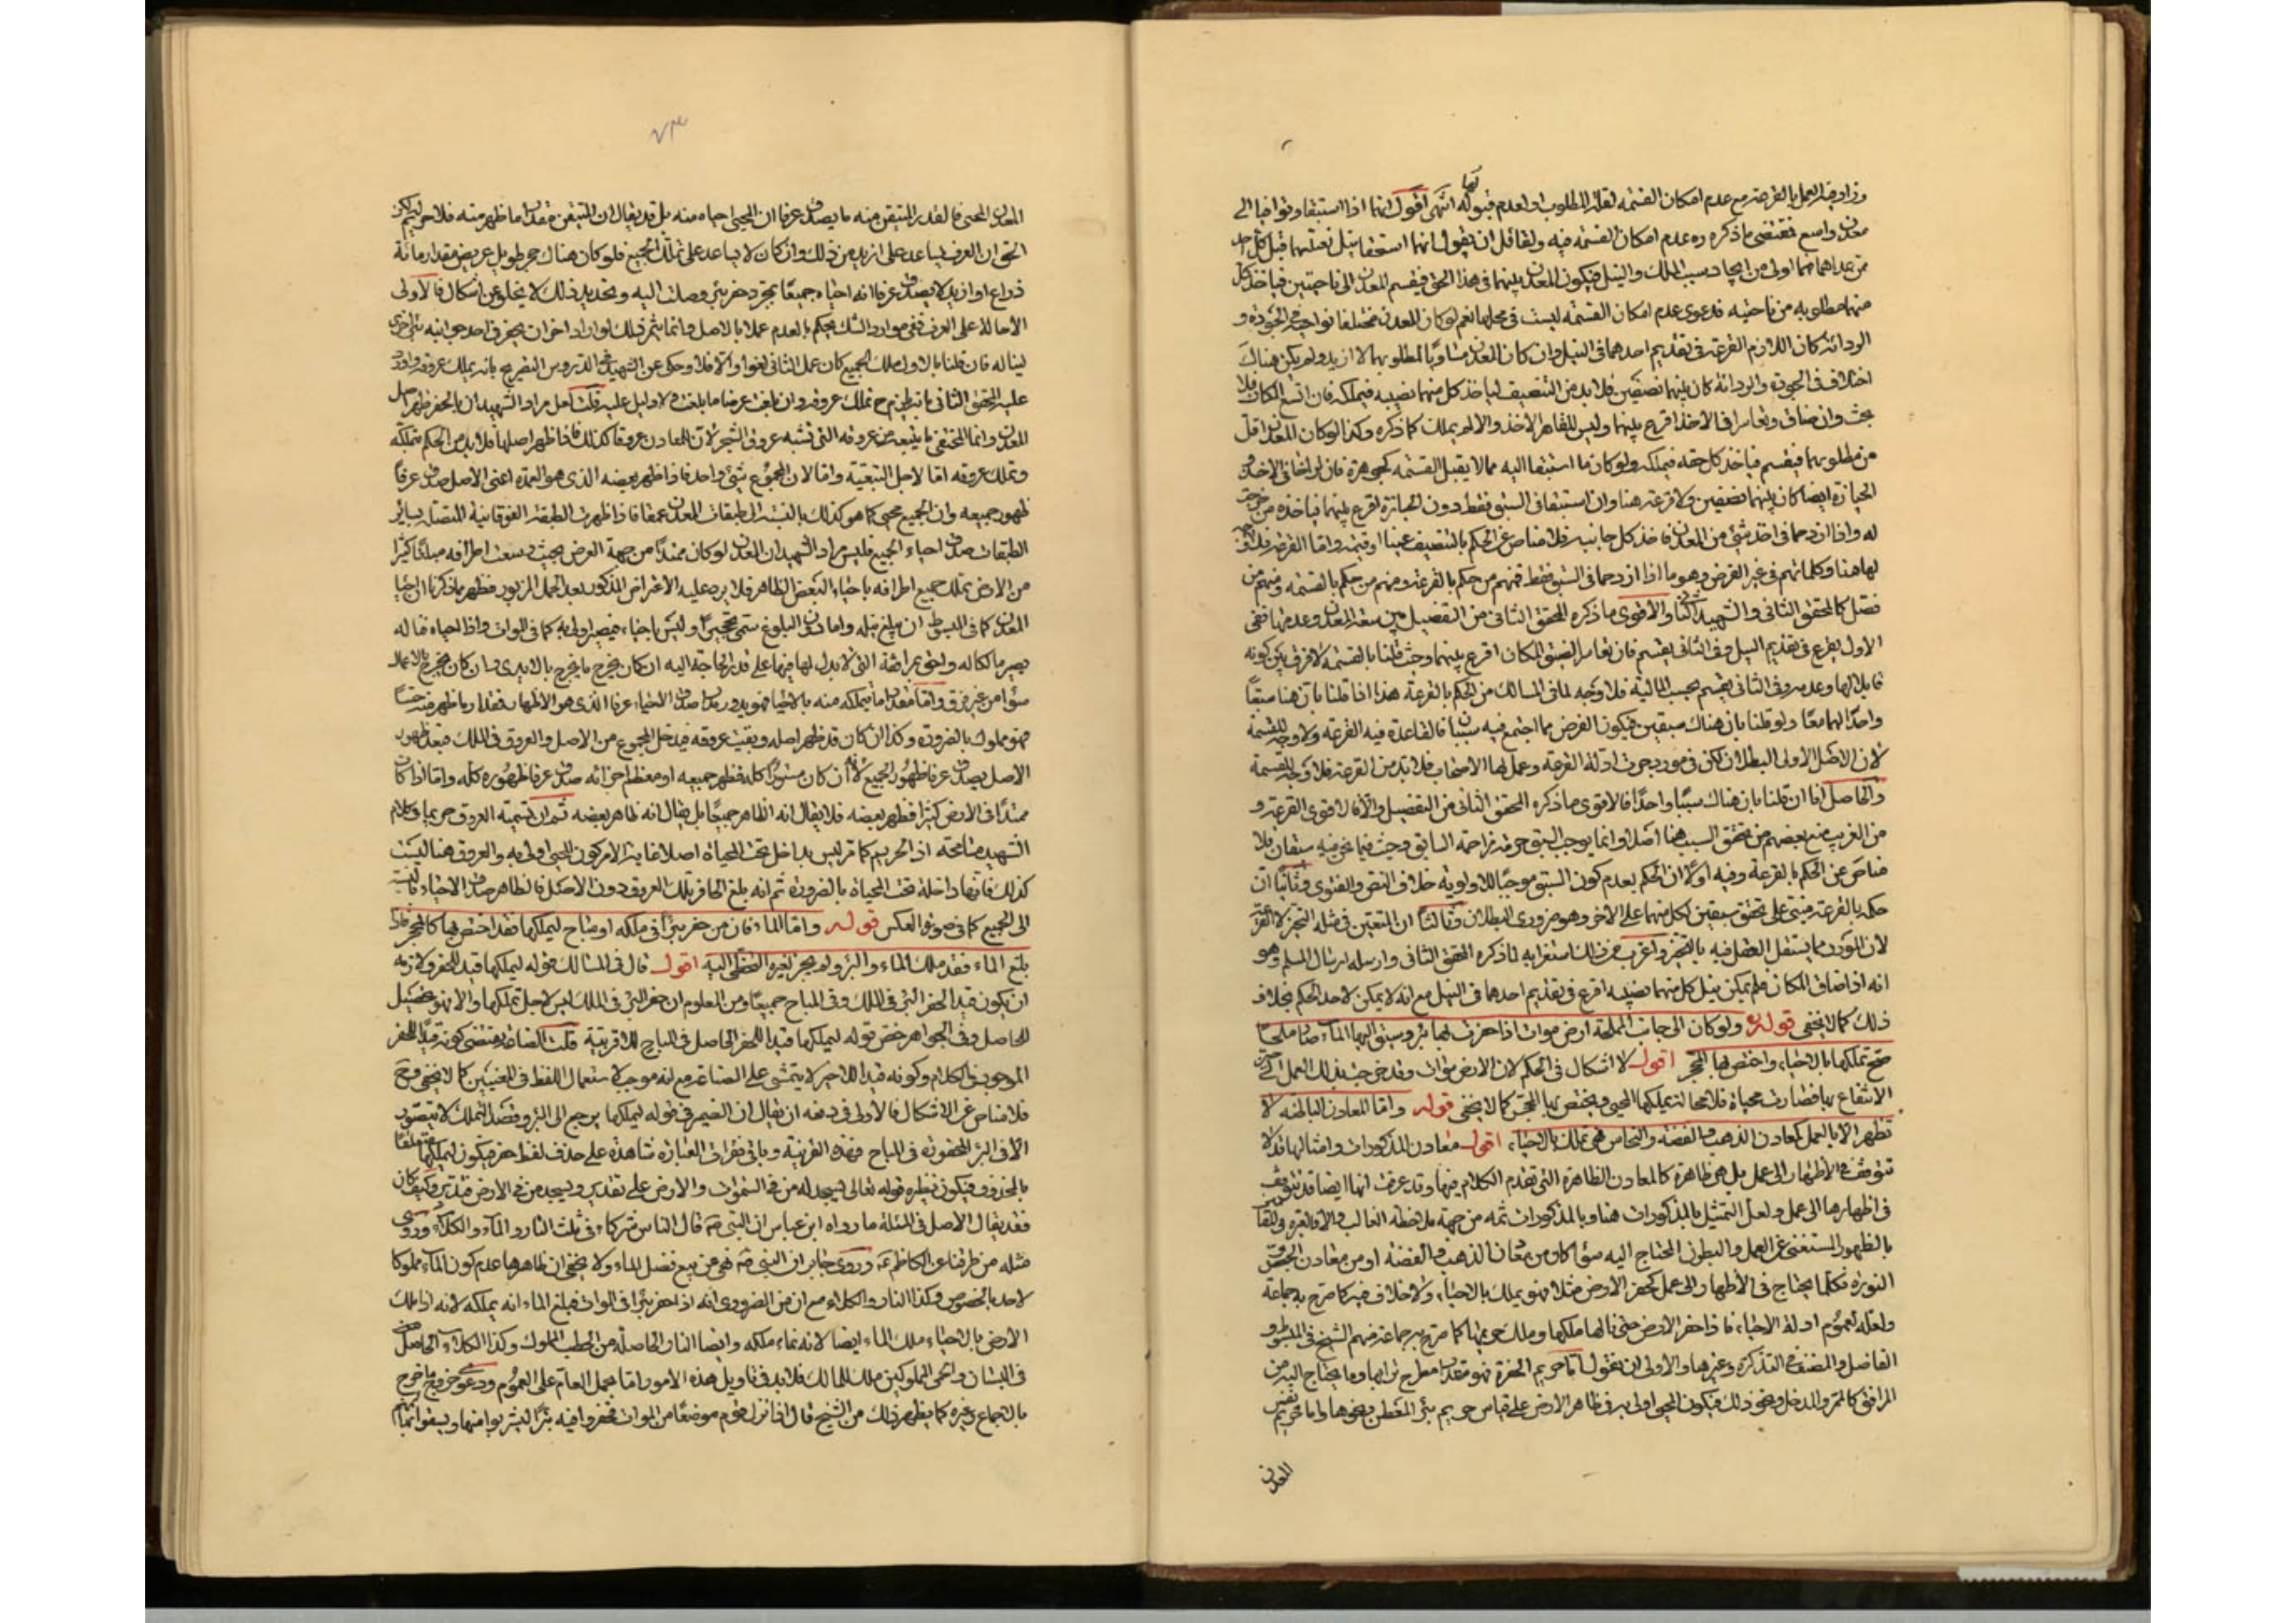 وزاد فيه العمل بالقرعة مع عدم امكان القسمة لقلة المطلوب او لعدم قبوله لها انتهى اقول انهما اذا استبقا وتوافيا الى
معدن واسع فمقتضى ما ذكره ره عدم امكان القسمة فيه ولقائل ان يقول انهما استحقا بنيل
من عداهما اولى من ايجاد سبب الملك والنيل فيكون المعدن بينهما في هذا الحق فيقسم المعدن الى ناحيتين فياخذ كل
منهما مطلوبه من ناحيته فدعوى عدم امكان القسمة ليست في محلها نعم لو كان المعدن مختلفا نواحيه في الجودة و
الردائة كان اللازم القرعة في تقديم احدهما في النيل وان كان المعدن مساويا لمطلوبهما لا ازيد ولم يكن هناك
اختلاف في الجودة والردائة كان بينهما نصفين فلا بد من التنصيف لياخذ كل منهما نصيبه فيملكه فان اتسع المكان فلا
بحث وان ضاق وتعاسرا في الاخذ اقرع بينهما وليس للقاهر الاخذ والا لم يملك كما ذكره وكذا لو كان المعدن اقل
من مطلوبهما فيقسم فياخذ كل حقه فيملكه ولو كان ما استبقا اليه مما لا يقبل القسمة كجوهرة فان توافيا في الاخذ و
الحيازة ايضا كان بينهما نصفين ولا قرعة هنا وان استبقا في السبق فقط دون الحيازة اقرع بينهما فياخذه من خرجت
له واذا ازدحما في اخذ شئ من المعدن فاخذ كل جانبه فلا مناص عن الحكم بالتنصيف عينا او قيمة واما القرعة فلا وجه
لها هنا وكلماتهم في غير الفرض وهو ما اذا ازدحما في السبق فقط فمنهم من حكم بالقرعة ومنهم من حكم بالقسمة ومنهم من
فصل كالمحقق الثاني والشهيد الثاني والاقوى ما ذكره المحقق الثاني من التفصيل بين سعة المعدن وعدمها ففي
الاول يقرع في تقديم النيل وفي الثاني يقسم فان تعاسرا لضيق المكان اقرع بينهما وحيث قلنا بالقسمة لا فرق بين كونه
قابلا لها وعدمه وفي الثاني يقسم بحسب المالية فلا وجه لما في المسالك من الحكم بالقرعة هذا اذا قلنا بان هنا سبقا
واحدا لهما معا ولو قلنا بان هناك سبقين فيكون الفرض مما اجتمع فيه سببان فالقاعدة فيه القرعة ولا وجه للقسمة
لان الاصل الاولى البطلان لكن في مورد جرت ادلة القرعة وعمل لها الاصحاب فلا بد من القرعة فلا وجه للقسمة
والحاصل انا ان قلنا بان هناك سببا واحدا فالاقوى ما ذكره المحقق الثاني من التفصيل والا فالاقوى القرعة و
من الغريب منع بعضهم من تحقق السبب هنا اصلا وانما يوجب السبق حرمة مزاحمة السابق وحيث فيما نحن فيه سبقان فلا
مناص عن الحكم بالقرعة وفيه اولا ان الحكم بعدم كون السبق موجبا للاولوية خلاف النص والفتوى وثانيا ان
حكمه بالقرعة مبتنى على تحقق سبقين لكل منهما على الاخر وهو ضرورى البطلان وثالثا ان المتعين في مثله التخير لا القرعة
لان المورد مما يستقل العقل فيه بالتخير واغرب من ذلك استغرابه لما ذكره المحقق الثاني وارسله ارسال المسلم وهو
انه اذا ضاق المكان فلم يمكن نيل كل منهما نصيبه اقرع في تقديم احدهما في النيل مع انه لا يمكن لاحد الحكم بخلاف
ذلك كما لا يخفى قوله ولو كان الى جانب المملحة ارض موات اذا حفرت لها بئر وسيق اليها الماء صار ملحا
صح تملكها بالاحياء واختص بها المحجر اقول لا اشكال في الحكم لان الارض موات وقد خرجت بذلك العمل الى حيز
الانتفاع بها فصارت محياة فلا محالة يملكها المحيى ويختص بها المحجر كما لا يخفى قوله واما المعادن الباطنة لا
تظهر الا بالعمل كمعادن الذهب والفضة والنحاس فهى تملك بالاحياء اقول معادن المذكورات وامثالها قد لا
تتوقف في الاظهار الى عمل بل هى ظاهرة كالمعادن الظاهرة التى تقدم الكلام فيها وقد عرفت انها ايضا قد تتوقف
في اظهارها الى عمل ولعل التمثيل بالمذكورات هنا وبالمذكورات ثمة من جهة ملاحظة الغالب والا فالعبرة في المقامين
بالظهور المستغنى عن العمل والبطون المحتاج اليه سواء كان من معادن الذهب والفضة او من معادن الجص و
النورة فكلما يحتاج في الاظهار الى عمل كحفر الارض مثلا فهو يملك بالاحياء ولا خلاف فيه كما صرح به جماعة
ولعله لعموم ادلة الاحياء فاذا حفر الارض حتى نالها ملكها وملك حريمها كما صرح به جماعة منهم الشيخ في المبسوط و
الفاضل والمصنف في التذكرة وغيرها والاولى ان نقول اما حريم الحفرة فهو مقدار مطرح ترابها وما يحتاج اليه من
المرافق كالممر والمدخل ونحو ذلك فيكون المحيى اولى به في ظاهر الارض على قياس حريم بئر المعطن ونحوها واما حريم نفس
المعدن
٧٣
المعدن المحيى فالقدر المتيقن منه ما يصدق عرفا ان المحيى احياه منه بل قد يقال ان المتيقن مقدار ما ظهر منه فلا حريم لكن
الحق ان العرف يساعد على ازيد من ذلك وان كان لا يساعد على تملك الجميع فلو كان هناك حجر طويل عريض مقدار مائة
ذراع او ازيد لا يصدق عرفا انه احياه جميعا بمجرد حفر بئر وصلت اليه وتحديد ذلك لا يخلو عن اشكال فالاولى
الاحالة على العرف ففي موارد الشك يحكم بالعدم عملا بالاصل وانما يثمر ذلك لو اراد اخر ان يحفر في احد جوانبه بئرا اخرى
لينا له فان قلنا بالاول ملك الجميع كان عمل الثاني لغوا والا فلا وحكى عن الشهيد في الدروس التصريح بانه يملك عروقه واورد
عليه المحقق الثاني بانه يلزم ح تملك عروقه وان بلغت عرضا ما بلغت ولا دليل عليه قلت لعل مراد الشهيد ان بالحفر ظهر اصل
المعدن وانما المختفى ما يتبعه من عروقه التى تشبه عروق الشجر لان للمعادن عروقا كذلك فاذا ظهر اصلها فلا بد من الحكم بتملكه
وتملك عروقه اما لاجل التبعية واما لان المجموع شئ واحد فاذا ظهر بعضه الذى هو العمدة اعنى الاصل صدق عرفا
ظهور جميعه وان الجميع محيى كما هو كذلك بالنسبة الى طبقات المعدن عمقا فاذا ظهرت الطبقة الفوقانية المتصلة بسائر
الطبقات صدق احياء الجميع فليس مراد الشهيد ان المعدن لو كان ممتدا من جهة العرض بحيث وسعت اطرافه مبلغا كثيرا
من الارض تملك جميع اطرافه باحياء البعض الظاهر فلا يرد عليه الاعتراض المذكور بعد الحمل المزبور فظهر بما ذكرنا ان احياء
المعدن كما في المبسوط ان يبلغ نيله واما دون البلوغ سمى تحجيرا وليس باحياء فيصير اولى به كما في الموات واذا احياه فما له
يصير مالكا له ولحق مرافقه التى لا بد له منها على قدر الحاجة اليه ان كان يخرج ما يخرج بالايدى وان كان يخرج بالاعمال
سواء من غير فرق واما مقدار ما يتملكه منه بالاحياء فهو يدور مدار صدق الاحياء عرفا الذى هو الاظهار فمقدار ما ظهر منه حسا
فهو مملوك بالضرورة وكذا ان كان قد ظهر اصله وبقيت عروقه فيدخل المجموع من الاصل والعروق في الملك فبعد ظهور
الاصل يصدق عرفا ظهور الجميع كما ان كان مستورا كله فظهر جميعه او معظم اجزائه صدق عرفا ظهوره كله واما اذا كان
ممتدا في الارض كثيرا فظهر بعضه فلا يقال انه الظاهر جميعا بل يقال انه ظاهر بعضه ثم ان تسمية العروق حريما في كلام
الشهيد مسامحة اذ الحريم كما مر ليس بداخل تحت المحياة اصلا غاية الامر كون المحيى اولى به والعروق هنا ليست
كذلك فانها داخلة تحت المحياة بالضرورة ثم انه بلغ الحافر بتلك العروق دون الاصل فالظاهر صدق الاحياء بالنسبة
الى الجميع كما في صورة العكس قوله واما الماء فان من حفر بئرا في ملكه او مباح ليملكها فقد اختص بها كالمحجر فاذا
بلغ الماء فقد ملك الماء والبئر ولم يجز لغيره التخطى اليه اقول قال في المسالك قوله ليملكها قيد للحفر ولازمه
ان يكون قيدا لحفر البئر في الملك وفى المباح جميعا ومن المعلوم ان حفر البئر في الملك ليس لاجل تملكها والا فهو تحصيل
للحاصل وفى الجواهر خص قوله ليملكها قيدا للحفر الحاصل في المباح للاقربية قلت الصناعة يقتضى كونه قيدا للحفر
الموجود في الكلام وكونه قيدا للاخير لا يتمشى على الصناعة مع انه موجب لاستعمال اللفظ في المعنيين كما لا يخفى وح
فلا مناص عن الاشكال فالاولى في دفعه ان يقال ان الضمير في قوله ليملكها يرجع الى البئر وقصد التملك لا يتصور
الا في البئر المحفورة في المباح فهذه القرينة وباقى فقرات العبارة شاهدة على حذف لفظ حفر فيكون ليملكها متعلقا
بالمحذوف فيكون نظيره قوله تعالى يسجد له من في السموات والارض على تقدير ويسجد من في الارض فتدبر وكيف كان
فقد يقال الاصل في المسئلة ما رواه ابن عباس ان النبى ص قال الناس شركاء في ثلث النار والماء والكلاء وروى
مثله من طرقنا عن الكاظم ع وروى جابر ان النبى ص نهى عن بيع فضل الماء ولا يخفى ان ظاهرها عدم كون الماء مملوكا
لاحد بالخصوص وكذا النار والكلاء مع ان من الضرورى انه اذا حفر بئرا في الموات فبلغ الماء انه يملكه لانه اذا ملك
الارض بالاحياء ملك الماء ايضا لانه نماء ملكه وايضا النار الحاصلة من الحطب المملوك وكذا الكلاء الحاصل
في البستان والحمى المملوكين ملك للمالك فلا بد في تاويل هذه الامور اما بحمل العام على العموم ودعوى خروج ما خرج
بالاجماع وغيره كما يظهر ذلك من الشيخ قال اذا نزل قوم موضعا من الموات فحفروا فيه بئرا ليشربوا منها ويسقوا بهائمهم